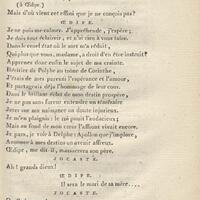 (à Œdipe.)
Mais d'où vient cet effroi que je ne conçois pas?
ŒDIPE.
Je ne puis me calmer. J'appréhende, j'espère;
Je dois tout éclaircir, et n'ai rien à vous taire.
Dans le cruel état où le sort m'a réduit,
Qui plus que vous, madame, a droit d'en être instruit?
Apprenez donc enfin le sujet de ma crainte.
Héritier de Polybe au trône de Corinthe,
J'étais de mes parents l'espérance et l'amour,
Et partageais déjà l'hommage de leur cour.
Dans le brillant éclat de mon destin prospère,
Je ne sais
sur ma naissance un doute injurieux.
Je m'en plaignis: le roi punit l'audacieux;
Mais au fond de mon cœur l'affront vivait encore.
Je pars, je vole à Delphe: Apollon que j'implore,
Annonce à mes destins un avenir affreux.
Œdipe, me dit-il, massacrera son père.
JOCASTE.
Ah! grands dieux!
ŒDIPE.
Il sera le mari de sa mère....
JOCASTE.